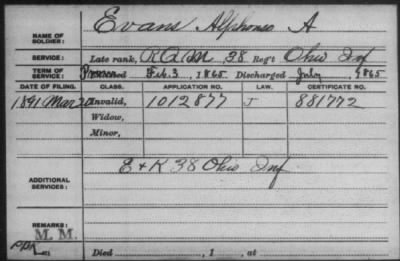 NAME OF SOLDIER: Evans Alphonso A
SERVICE: Late rank, R.Q.M. 38 Reg't Ohio Inf
TERM OF SERVICE: Feb. 3, 1865 Discharged July, 1865
DATE OF FILING. CLASS. APPLICATION NO. LAW. CERTIFICATE NO.
1891 Mar 20 Invalid, 1012877 J 881772
Widow,
Minor,
ADDITIONAL SERVICES: E + K 38 Ohio Inf
REMARKS:
M. M.
Died , 1 , at